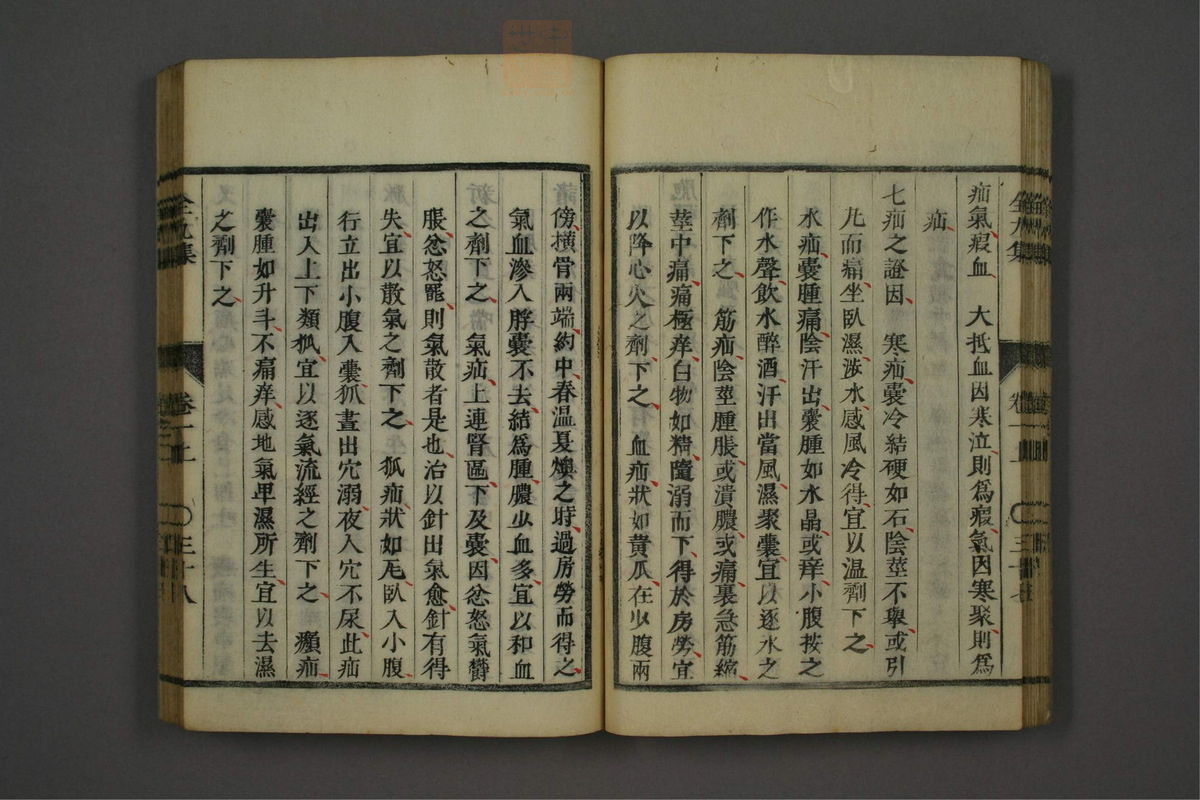 疝氣瘕血　大抵血因寒泣則爲瘕氣因寒聚則爲
疝
七疝之證因　寒疝囊冷結硬如石陰莖不舉或引
凡而痛坐臥濕涉水感風冷得宜以温劑下之
水疝囊腫痛陰汗出囊腫如水晶或痒小腹按之
作水聲飲水醉酒汗出當風濕聚囊宜以逐水之
劑下之　筋疝陰莖腫脹或潰膿或痛裏急筋縮
莖中痛痛極痒白物如精隨溺而下得於房勞宜
以降心火之劑下之　血疝狀如黄瓜在少腹兩
傍横骨兩端約中春温夏燠之時過房勞而得之
氣血滲入脬囊不去結爲腫膿少血多宜以和血
之劑下之　氣疝上連腎區下及囊因忿怒氣欝
脹忿怒罷則氣散者是也治以針出氣愈針有得
失宜以散氣之劑下之　狐疝狀如尾臥入小腹
行立出小腹入囊狐晝出穴溺夜入穴不尿此疝
出入上下類狐宜以逐氣流經之劑下之　㿗疝
囊腫如升斗不痛痒感地氣卑濕所生宜以去濕
之劑下之
全九集
卷一上
〇三十八